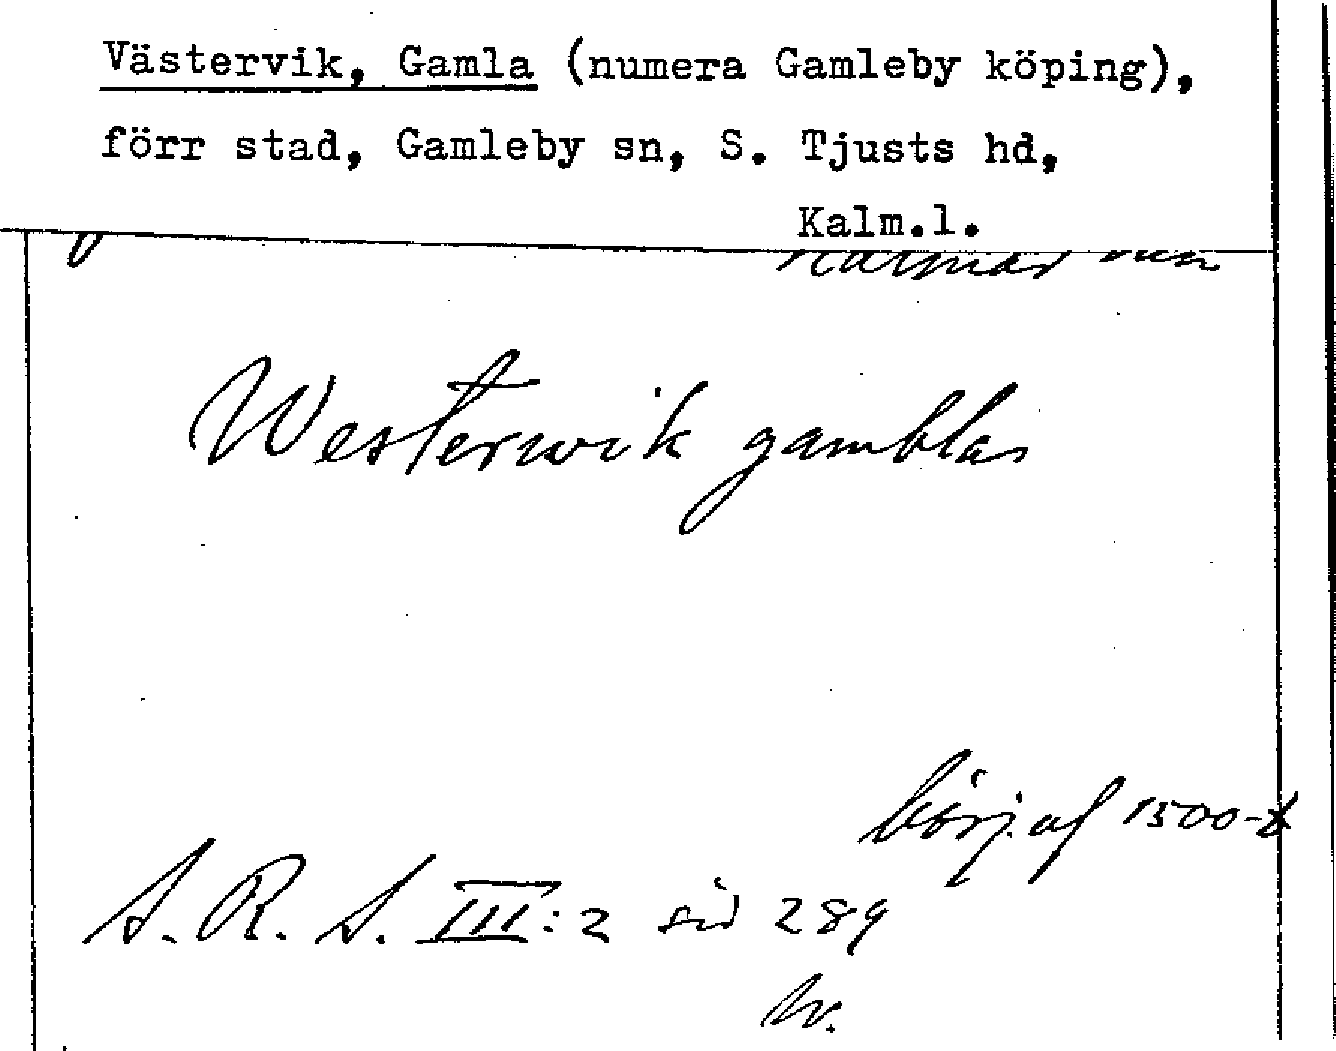 Västervik, Gamla (numera Gamleby köping),
förr stad, Gamleby sn, S. Tjusts hd,
Kalm.l.
Westerwik gamblas
börj. af 1500-t
S. R. S. III:2 sid 289
tr.